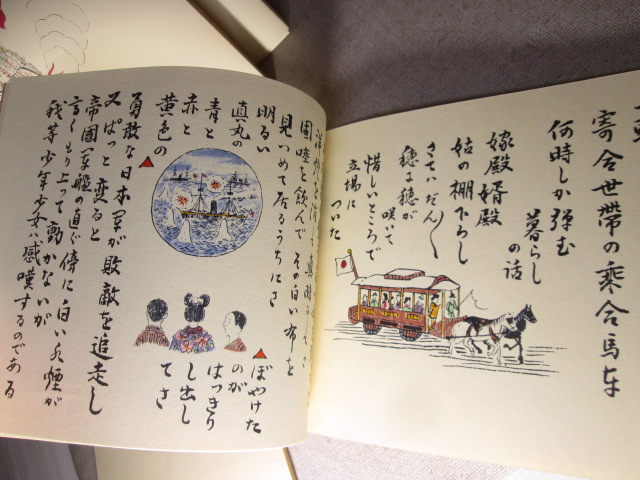 寄合世帯の乗合馬車
何時しか弾む
暮らし
の話
嫁殿婿殿
姑の棚下ろし
さていだん〱
穂に穂が
咲いて
惜しいところで
立場に
ついた
固唾を飲んで その白い布を
見いつめて居るうちにさ
明るい
真丸の
青と
赤と
黄色の
ぼやけた
のが
はっきり
し出し
てさ
勇敢な日本軍が敗敵を追走し
又ぱっと変ると
帝国軍艦の直ぐ傍に白い水煙が
高くもり上って動かないが
我等少年少女は感嘆するのである